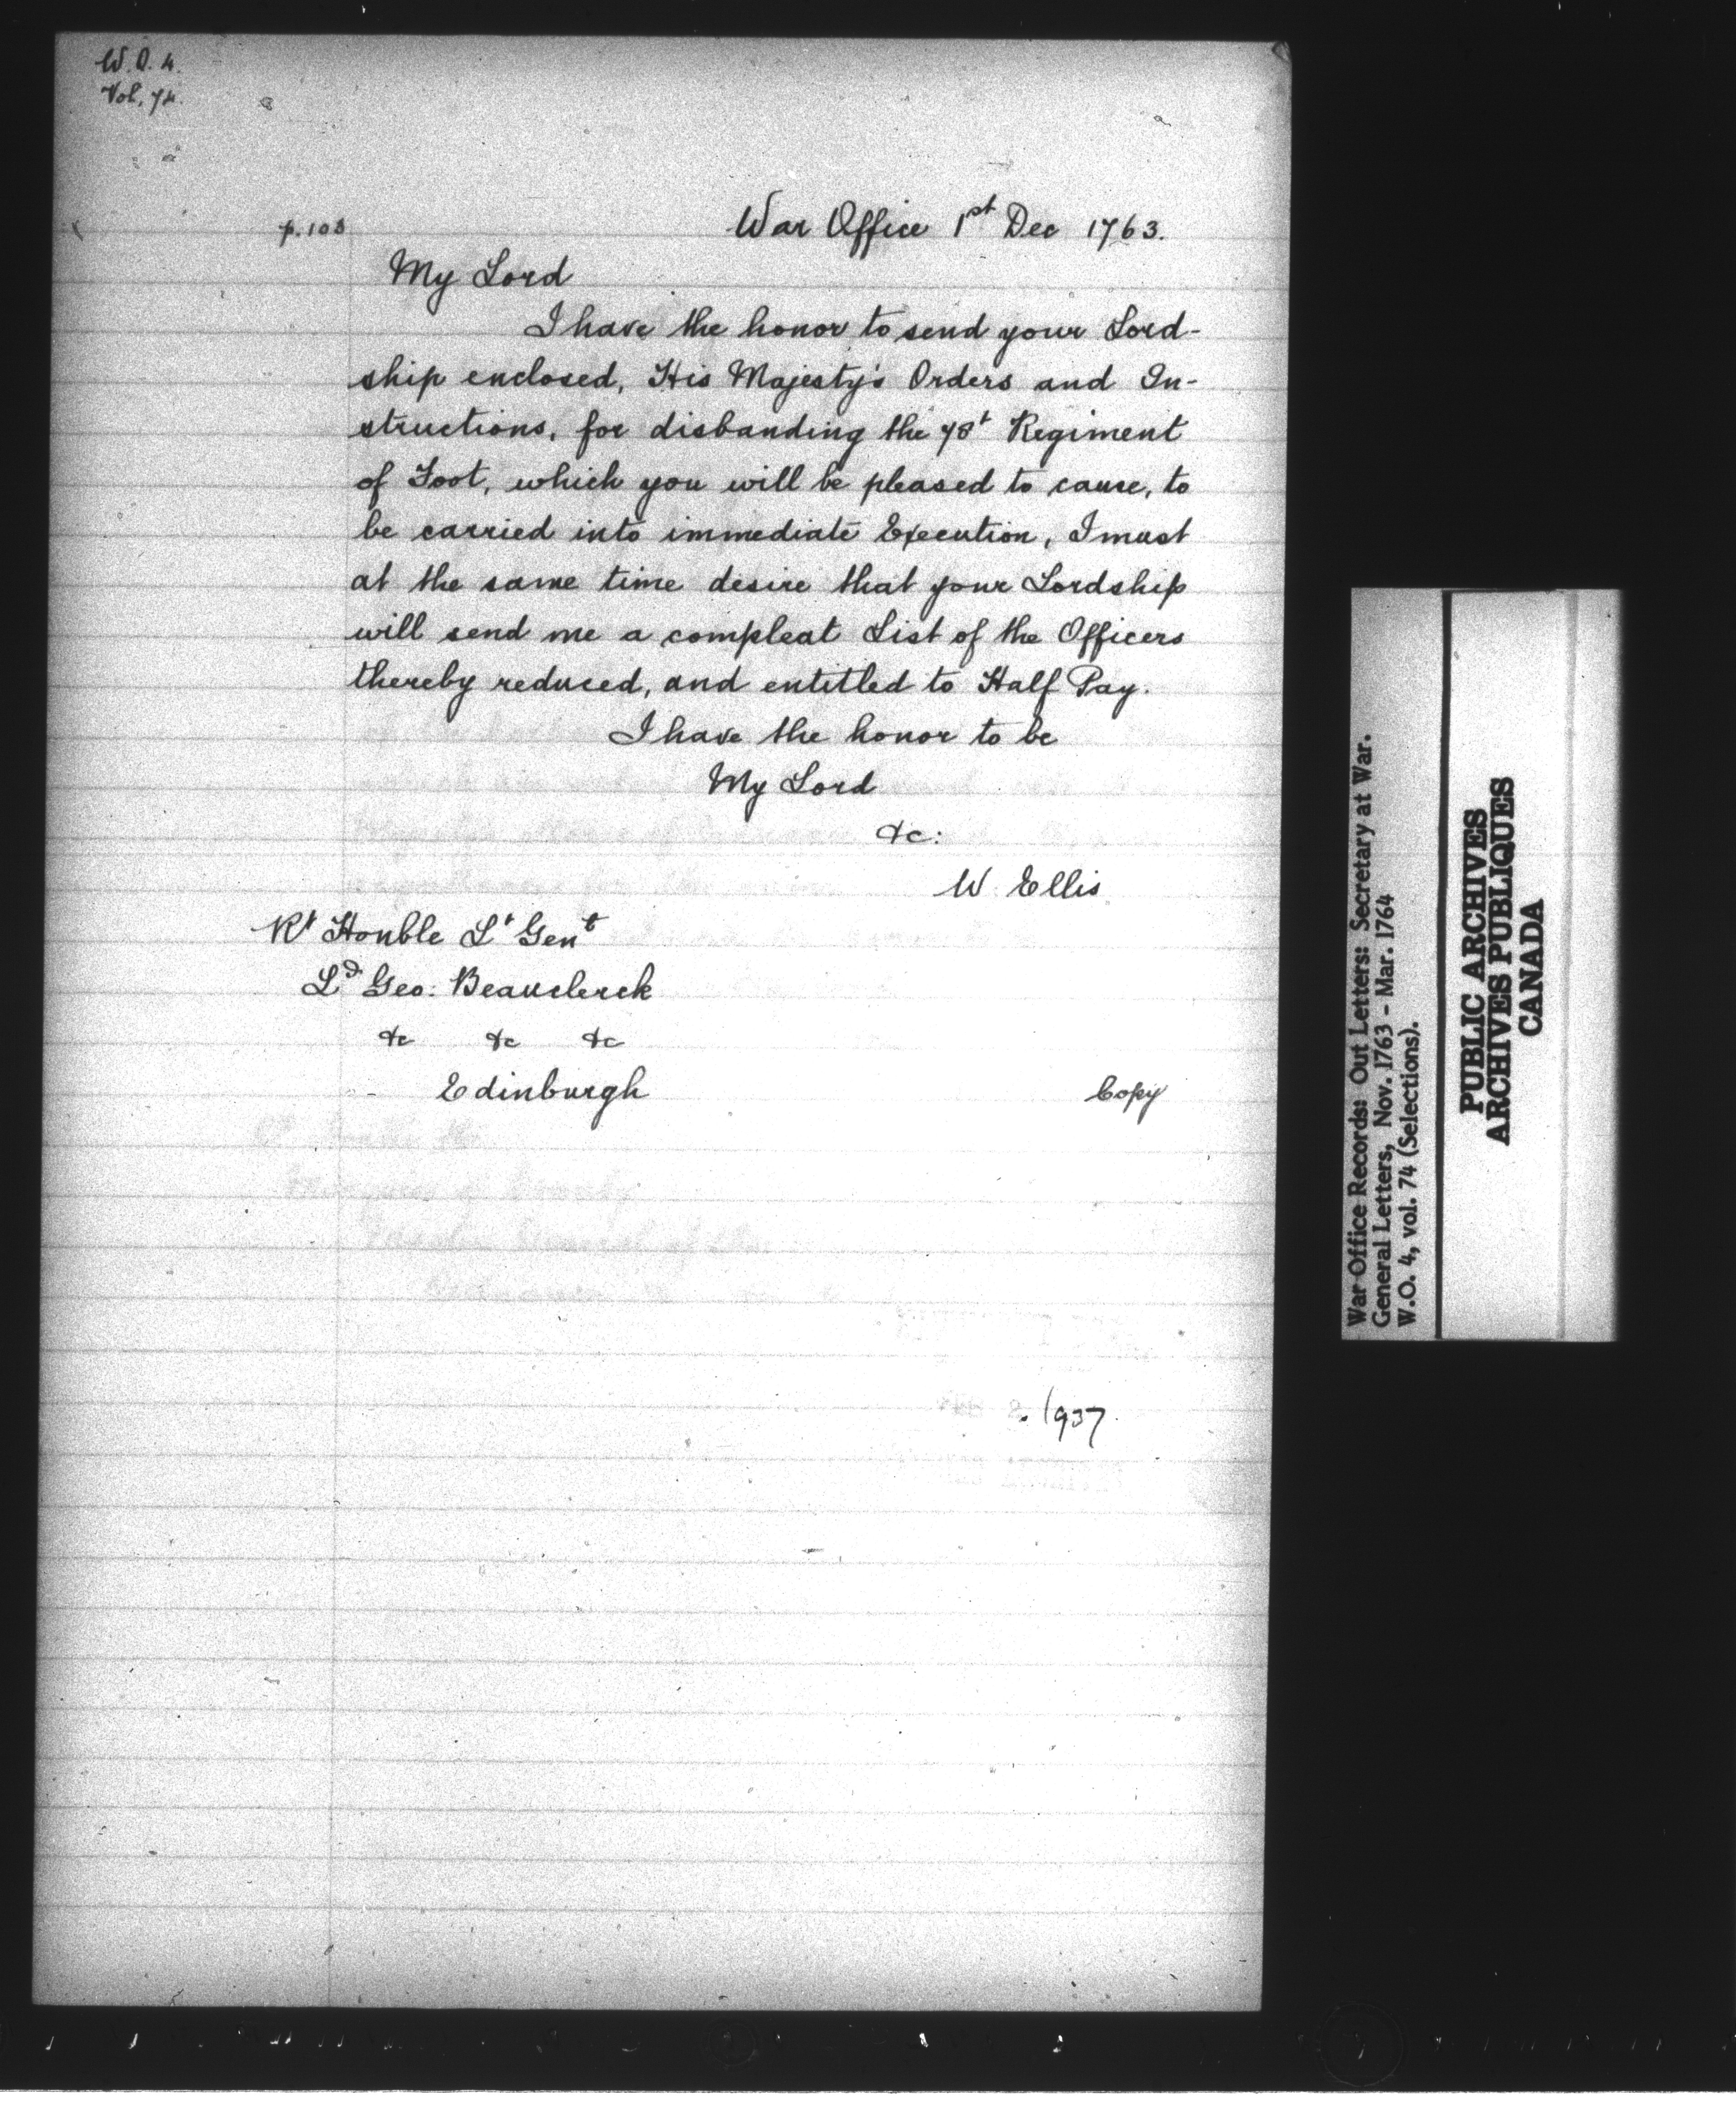 W.O. 4.
Vol. 74.
p. 103
War Office 1st Dec 1763.
My Lord
I have the honor to send your Lord-
ship enclosed, His Majesty's Orders and In-
structions, for disbanding the 78t Regiment
of Foot, which you will be pleased to cause, to
be carried into immediate Execution, I must
at the same time desire that your Lordship
will send me a compleat List of the Officers
thereby reduced, and entitled to Half Pay.
I have the honor to be
My Lord
&c:
W Ellis
Rt Honble Lt Genl
Ld Geo: Beauclerck
&c &c &c
Edinburgh
Copy
1937
War Office Records: Out Letters: Secretary at War.
General Letters, Nov. 1763 - Mar. 1764
W.O. 4, vol. 74 (Selections).
PUBLIC ARCHIVES
ARCHIVES PUBLIQUES
CANADA